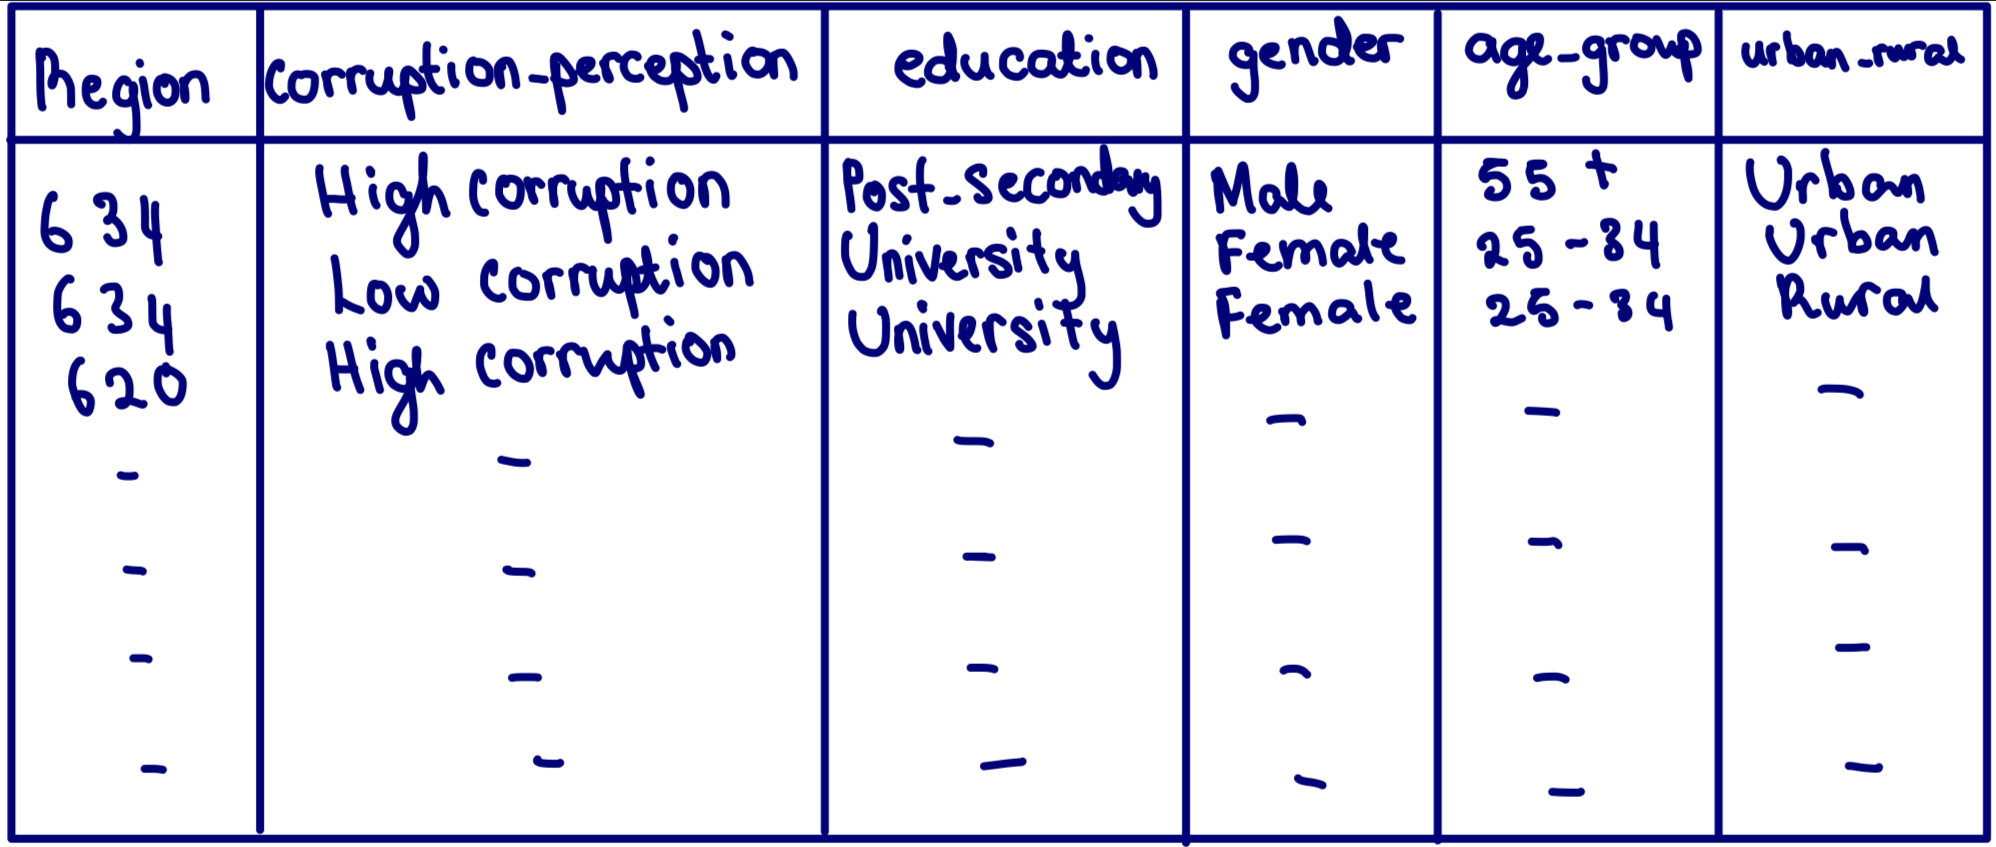 Region corruption_perception education gender age_group urban_rural
634 High corruption Post-Secondary Male 55+ Urban
634 Low corruption University Female 25-34 Urban
620 High corruption University Female 25-34 Rural
- - - - - -
- - - - - -
- - - - - -
- - - - - -